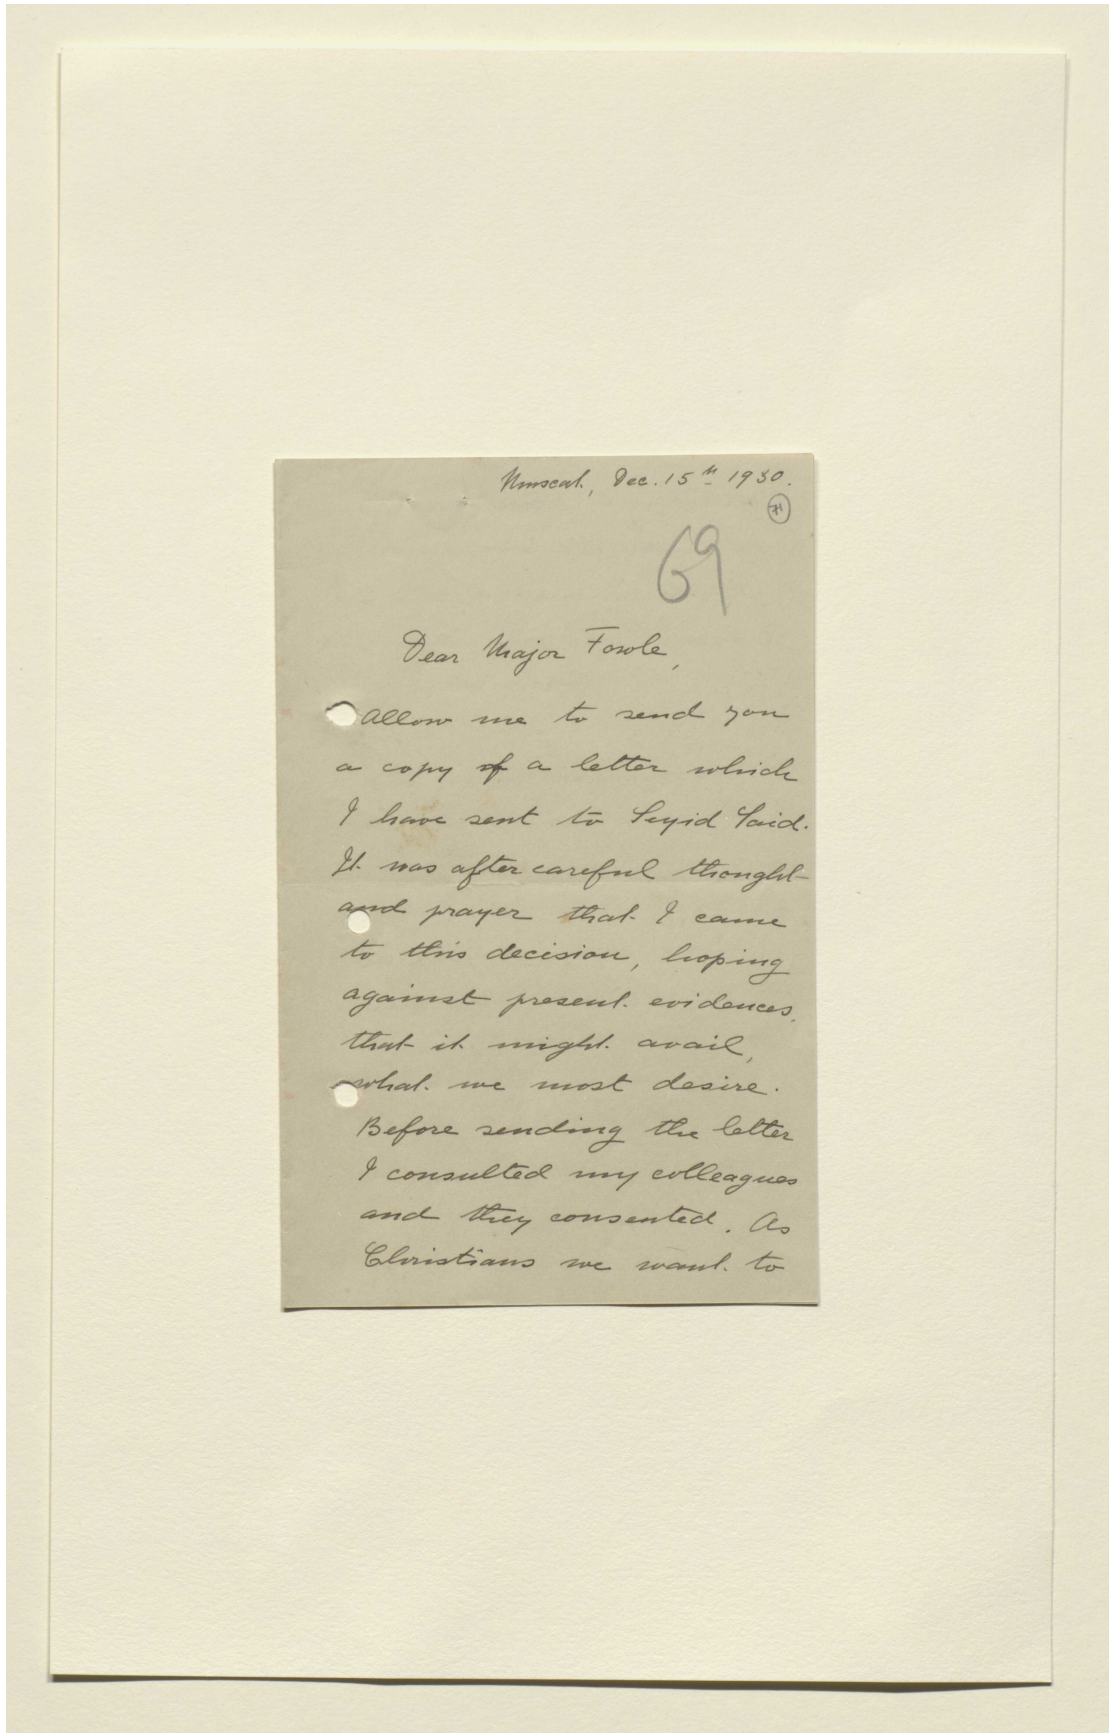 Muscat, Dec. 15th 1930.
71
69
Dear Major Fowle,
Allow me to send you
a copy of a letter which
I have sent to Seyid Said.
It was after careful thought
and prayer that I came
to this decision, hoping
against present evidences,
that it might avail,
what we most desire.
Before sending the letter
I consulted my colleagues
and they consented. As
Christians we want to